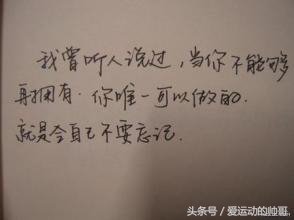 我曾听人说过，当你不能够
再拥有．你唯一可以做的．
就是令自己不要忘记．
头条号／爱运动的帅哥